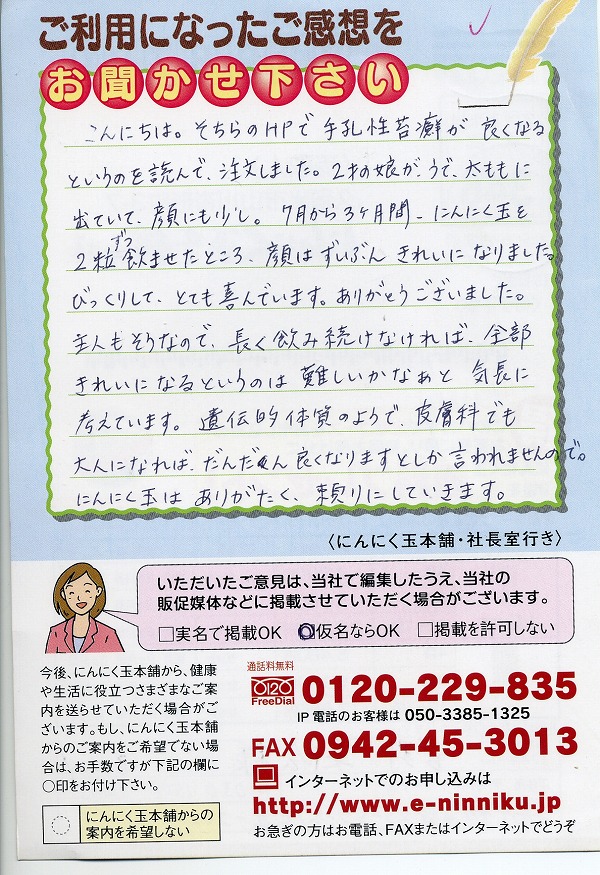 ご利用になったご感想を
お聞かせ下さい
こんにちは。そちらのHPで 手孔性苔癬が 良くなる
というのを読んで、注文しました。2才の娘が、うで、太ももに
出ていて、顔にも少し。7月から3ヶ月間、にんにく玉を
2粒ずつ飲ませたところ、顔は ずいぶん きれいに なりました。
びっくりして、とても喜んでいます。ありがとうございました。
主人もそうなので、長く飲み続けなければ、全部
きれいになるというのは 難しいかなぁと 気長に
考えています。遺伝的体質のようで、皮膚科でも
大人になれば、だんだん良くなりますとしか 言われませんので。
にんにく玉は ありがたく、頼りにしていきます。
〈にんにく玉本舗・社長室行き〉
いただいたご意見は、当社で編集したうえ、当社の
販促媒体などに掲載させていただく場合がございます。
□実名で掲載OK □仮名ならOK □掲載を許可しない
今後、にんにく玉本舗から、健康
や生活に役立つさまざまなご案
内を送らせていただく場合がご
ざいます。もし、にんにく玉本舗
からのご案内をご希望でない場
合は、お手数ですが下記の欄に
○印をお付け下さい。
にんにく玉本舗からの
案内を希望しない
通話料無料
0120 FreeDial 0120-229-835
IP電話のお客様は 050-3385-1325
FAX 0942-45-3013
インターネットでのお申し込みは
http://www.e-ninniku.jp
お急ぎの方はお電話、FAXまたはインターネットでどうぞ